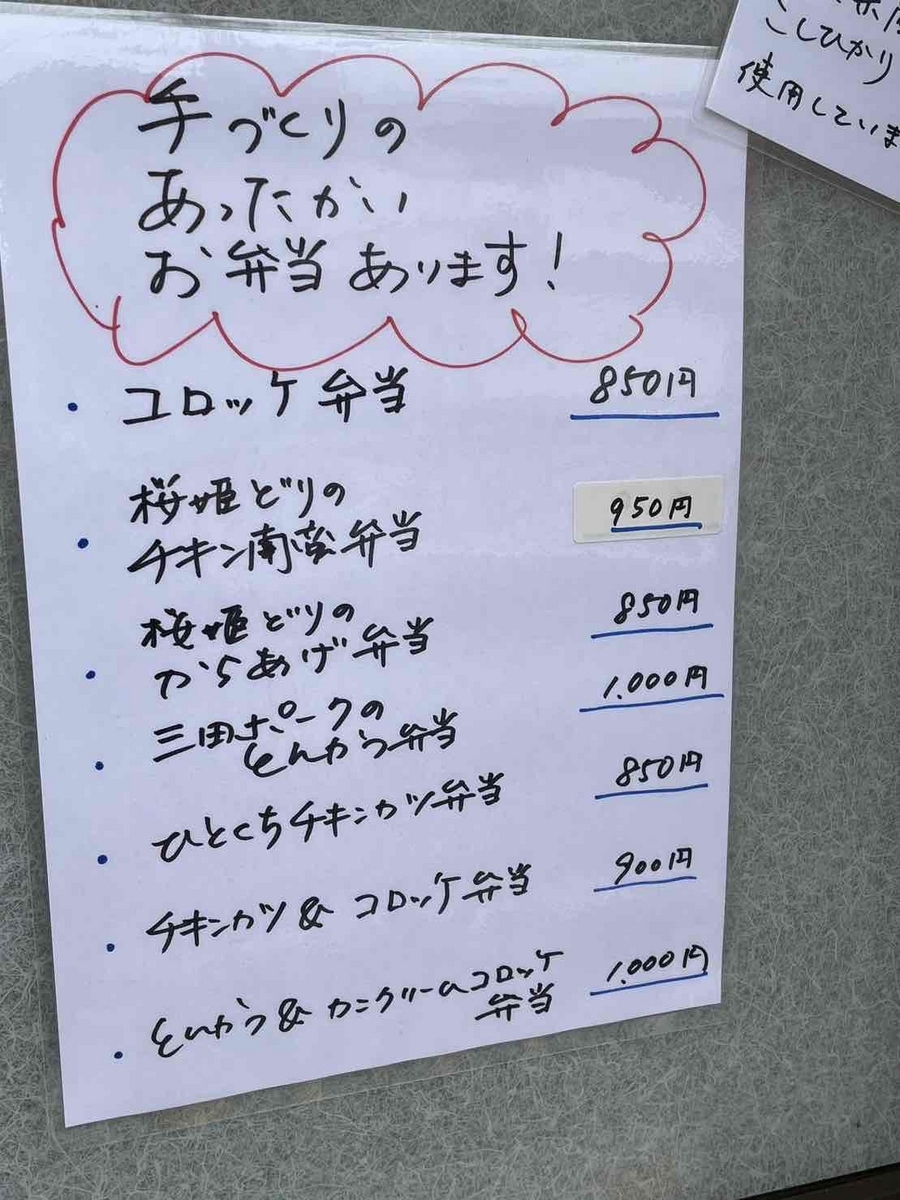 手づくりの
あったかい
お弁当あります!
・コロッケ弁当 850円
桜姫どりの
・チキン南蛮弁当 950円
桜姫どりの
・からあげ弁当 850円
三田ポークの
・とんかつ弁当 1.000円
・ひとくちチキンカツ弁当 850円
・チキンカツ&コロッケ弁当 900円
・とんかつ&カニクリームコロッケ
弁当 1.000円
こしひかり
使用していま